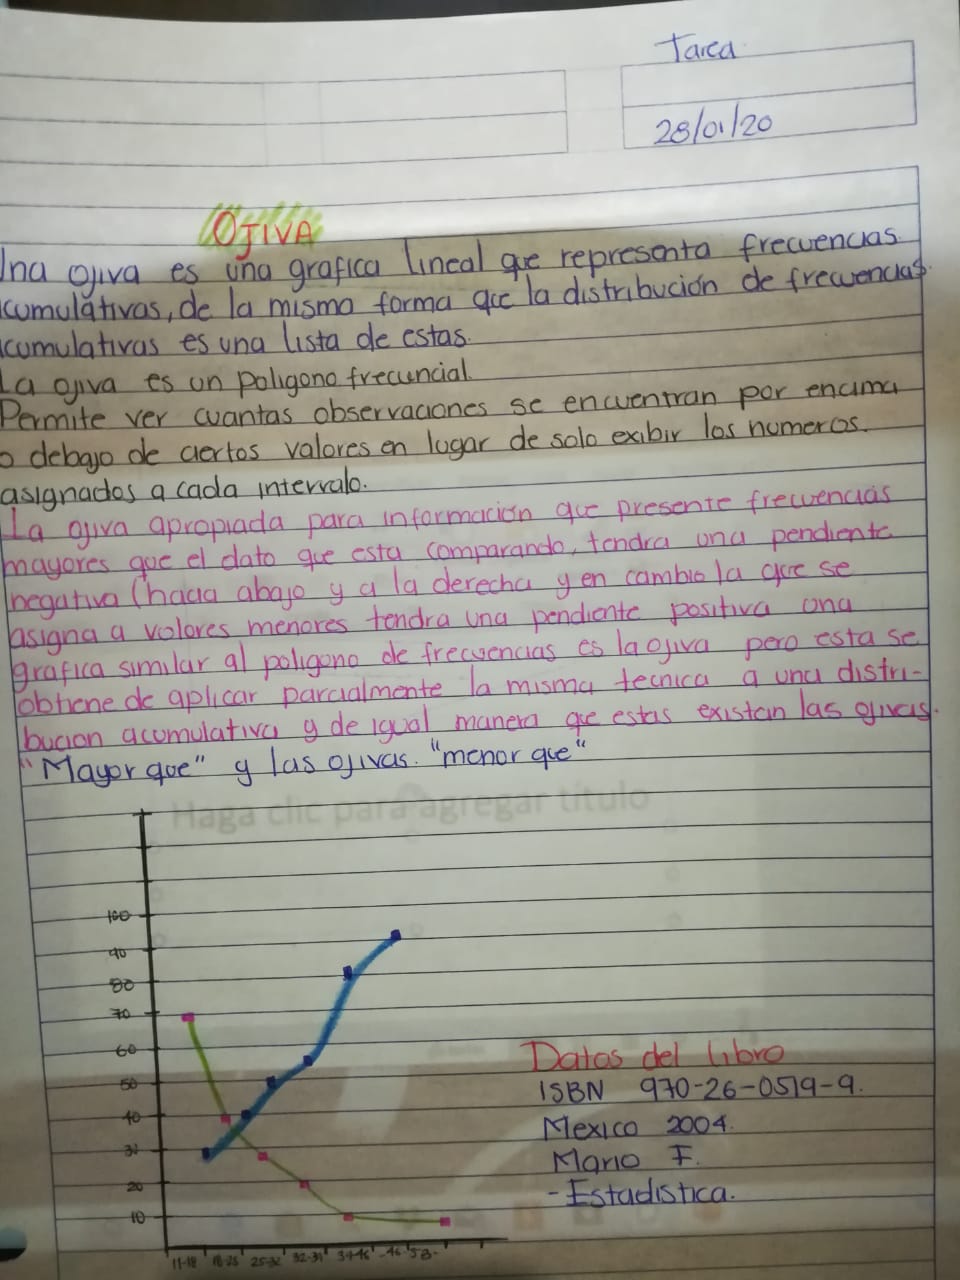 Tarea
28/01/20
OJIVA
Una ojiva es una grafica lineal que representa frecuencias
cumulativas, de la misma forma que la distribución de frecuencias
cumulativas es una lista de estas.
La ojiva es un poligono frecuncial.
Permite ver cuantas observaciones se encuentran por encima
o debajo de ciertos valores en lugar de solo exibir los numeros.
asignados a cada intervalo.
La ojiva apropiada para información que presente frecuencias
mayores que el dato que esta comparando, tendra una pendiente
negativa (hacia abajo y a la derecha y en cambio la que se
asigna a valores menores tendra una pendiente positiva una
grafica similar al poligono de frecuencias es la ojiva pero esta se
obtiene de aplicar parcialmente la misma tecnica a una distri-
bucion acumulativa y de igual manera que estas existen las ojivas.
"Mayor que" y las ojivas. "menor que"
Haga clic para agregar título
100
90
80
70
60
50
40
20
10
11-18 18-25 25-32 32-39
Datos del libro
ISBN 970-26-0519-9.
Mexico 2004.
Mario F.
- Estadistica.